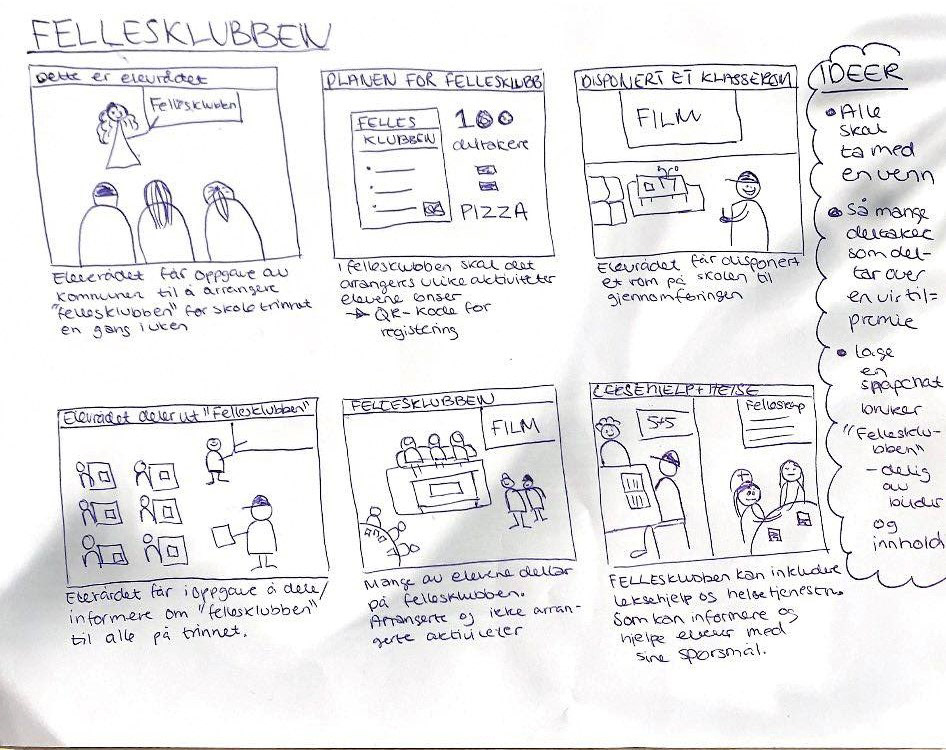 FELLESKLUBBEN
Dette er elevrådet
Fellesklubben
Eleverådet får oppgave av
kommunen til å arrangere
"fellesklubben" for skole trinnet
en gang i uken
PLANEN FOR FELLESKLUBB
FELLES
KLUBBEN
100
deltakere
PIZZA
I fellesklubben skal det
arrangers ulike aktiviteter
elevene ønser
→ QR-kode for
registering
DISPONERT ET KLASSEROM
FILM
Elevrådet får disponert
et rom på skolen til
gjennomføringen
Elevrådet deler ut "Fellesklubben"
Eleverådet får i oppgave å dele/
informere om "fellesklubben"
til alle på trinnet.
FELLESKLUBBEN
FILM
Mange av elevene deltar
på fellesklubben.
Arrangerte og ikke arran-
gerte aktiviteter
LEKSEHJELP + HELSE
5+5
Felleskap
FELLESKLUBBEN kan inkludere
leksehjelp og helsetjenesten.
Som kan informere og
hjelpe elever med
sine spørsmål.
IDEER
• Alle
skal
ta med
en venn
• Så mange
deltaker
som del-
tar over
en viss tid =
premie
• lage
en
snapchat
bruker
"Fellesklu-
bben"
- deling
av
bilder
og
innhold